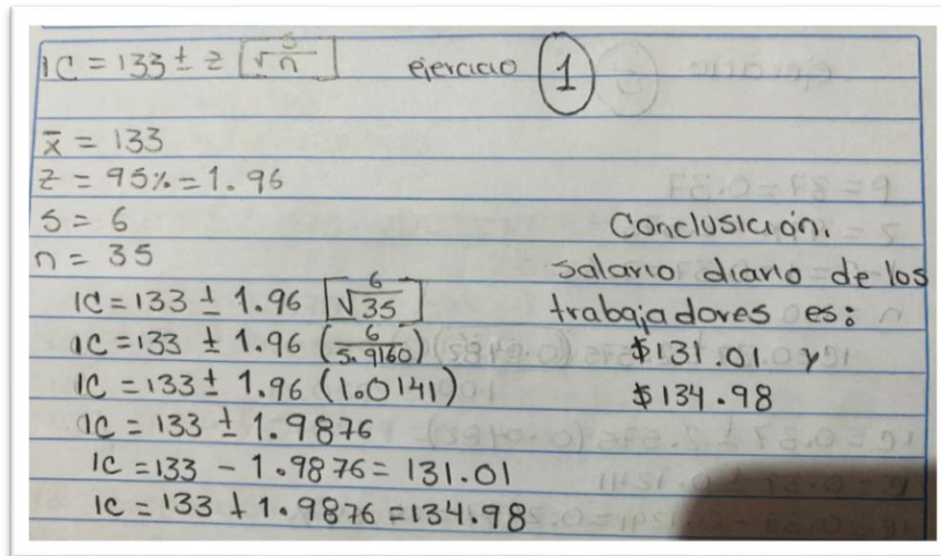 IC = 133 ± z [s/√n] ejercicio 1
x̄ = 133
z = 95% = 1.96
s = 6
n = 35
IC = 133 ± 1.96 [6/√35]
IC = 133 ± 1.96 (6/5.9160)
IC = 133 ± 1.96 (1.0141)
IC = 133 ± 1.9876
IC = 133 - 1.9876 = 131.01
IC = 133 + 1.9876 = 134.98
Conclusición.
salario diario de los
trabajadores es:
$131.01 y
$134.98